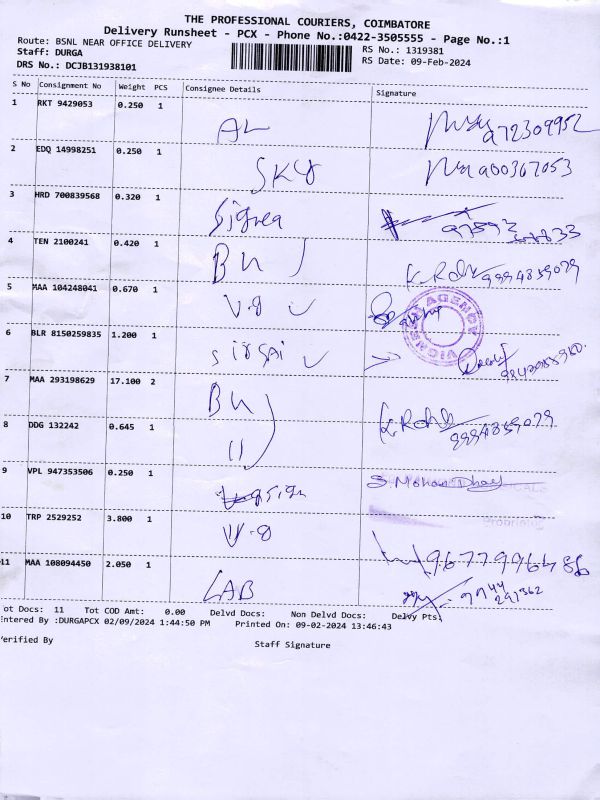 THE PROFESSIONAL COURIERS, COIMBATORE
Delivery Runsheet - PCX - Phone No.:0422-3505555 - Page No.:1
Route: BSNL NEAR OFFICE DELIVERY
RS No.: 1319381
Staff: DURGA
RS Date: 09-Feb-2024
DRS No.: DCJB131938101
S No Consignment No Weight PCS Consignee Details Signature
1 RKT 9429053 0.250 1 AL 972309952
2 EDQ 14998251 0.250 1 SKY 900367053
3 HRD 700839568 0.320 1 Signea
4 TEN 2100241 0.420 1 BN 9994859079
5 MAA 104248041 0.670 1 V-8
6 BLR 8150259835 1.200 1
7 MAA 293198629 17.100 2 BN
8 DDG 132242 0.645 1 11 9994859079
9 VPL 947353506 0.250 1 sign S. Mohan Dhay
Proprietor
10 TRP 2529252 3.800 1 V-8
11 MAA 108094450 2.050 1 LAB
ot Docs: 11 Tot COD Amt: 0.00 Delvd Docs: Non Delvd Docs: Delvy Pts:
Entered By :DURGAPCX 02/09/2024 1:44:50 PM Printed On: 09-02-2024 13:46:43
erified By Staff Signature